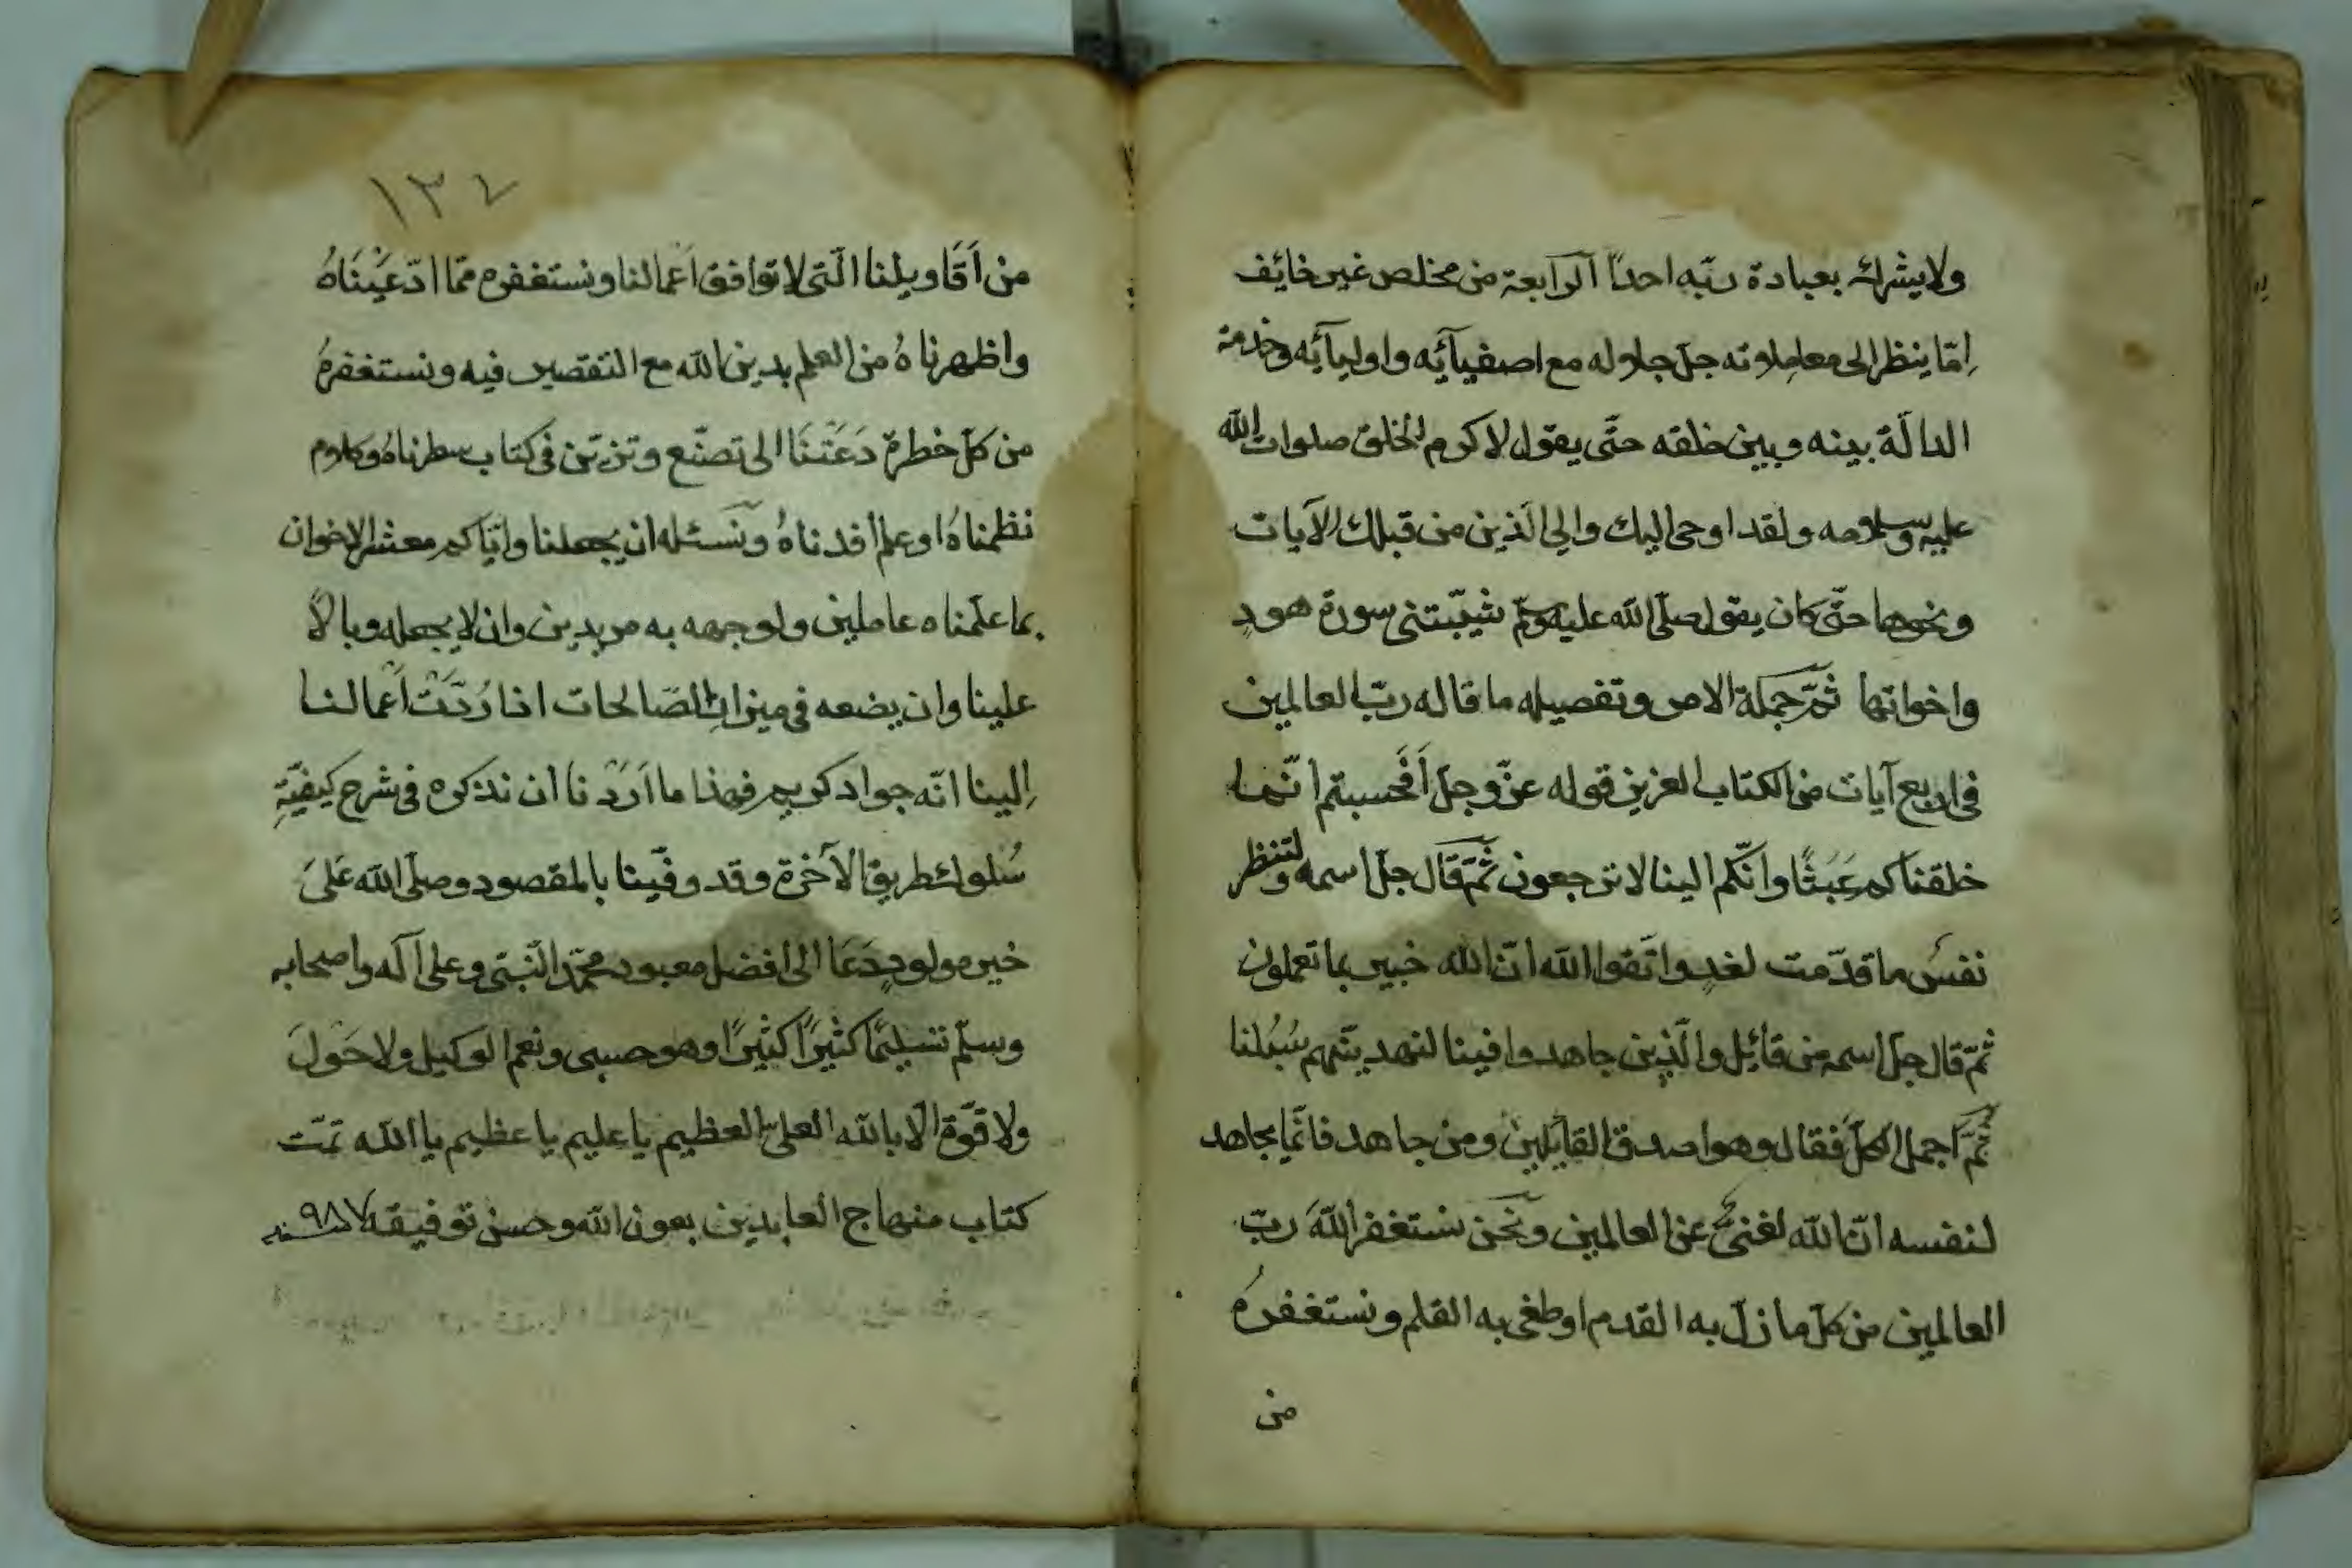 ولا يشرك بعبادة ربّه احدًا الرّابعة من مخلص غير خائِف
اِمّا ينظر الى معاملاته جلّ جلاله مع اصفيآئِه واوليآئِه وخدمة
الدالّة بينه وبين خلقه حتّى يقول لاكرم الخلق صلوات الله
عليه وسلامه ولقد اوحى اليك والى الّذين من قبلك الآيات
ونحوها حتّى كان يقول صلّى الله عليه وسلّم شيّبتنى سورة هود
واخواتها ثمّ جملة الامر وتفصيله ما قاله ربّ العالمين
فى اربع آيات من الكتاب العزيز قوله عزّ وجلّ اَفحسبتم انّما
خلقناكم عَبَثًا وانّكم الينا لا ترجعون ثمّ قال جلّ اسمه ولتنظر
نفس ما قدّمت لغدٍ واتّقوا الله انّ الله خبير بما تعملون
ثمّ قال جلّ اسمه من قائِل والّذين جاهدوا فينا لنهدينّهم سُبُلنا
ثمّ اجمل الكلّ فقال وهو اصدق القآئِلين ومن جاهد فانّما يجاهد
لنفسه انّ الله لغنىّ عن العالمين ونحن نستغفر اللهَ ربّ
العالمين من كلّ ما زلّ به القدم او طغى به القلم ونستغفرهُ
من
١٣٤
من اَقَاويلنا الّتى لا توافق اَعْمالنا ونستغفره ممّا ادّعَيْنَاهُ
واظهرناهُ من العلم بدين الله مع التقصير فيه ونستغفرهُ
من كلّ خطرة دَعَتْنَا الى تصنّع وتزيّن فى كتاب سطرناهُ وكلام
نظمناهُ او علم افدناهُ ونَسئله ان يجعلنا وايّاكم معشر الاخوان
بما علّمناه عاملين ولوجهه به مريدين وان لا يجعله وبالًا
علينا وان يضعه فى ميزان الصّالحات اذا رُدَّتْ اَعْمالنا
اِلينا انّه جواد كريم فهذا ما اَرَدْنا ان نذكره فى شرح كيفيّةِ
سُلوك طريق الآخرة وقد وفّينا بالمقصود وصلّى الله عَلىَ
خير مولودٍ دَعَا الى افضل معبود محمّد النّبىّ وعلى آله واصحابه
وسلّم تَسْليمًا كثيرًا كثيرًا وهو حسبى ونعم الوكيل ولا حَوْلَ
ولا قوّة الّا بالله العلىّ العظيم يا عليم يا عظيم يا الله تمّت
كتاب منهاج العابدين بعون الله وحسن توفيقه سنه ٩٨٧